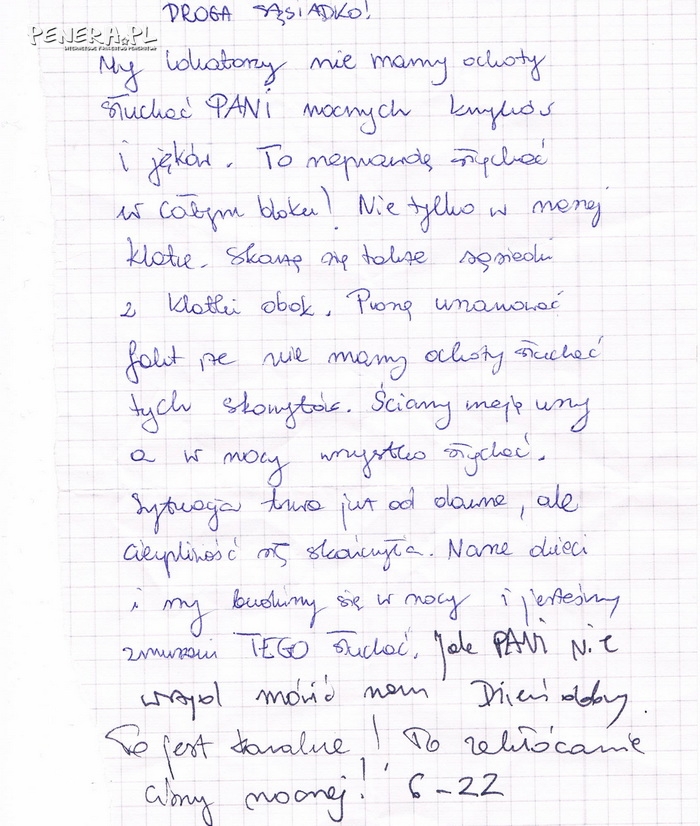 DROGA SĄSIADKO!
PENERA.PL
My lokatorzy nie mamy ochoty
słuchać PANI nocnych krzyków
i jęków. To naprawdę słychać
w całym bloku! Nie tylko w naszej
klatce. Skarżą się także sąsiedzi
z klatki obok. Proszę uszanować
fakt że nie mamy ochoty słuchać
tych skowytów. Ściany mają uszy
a w nocy wszystko słychać.
Sytuacja trwa już od dawna, ale
cierpliwość się skończyła. Nasze dzieci
i my budzimy się w nocy i jesteśmy
zmuszani TEGO słuchać. Jak PANI Nie
wstyd mówić nam Dzień dobry.
To jest karalne! To zakłócanie
ciszy nocnej! 6-22